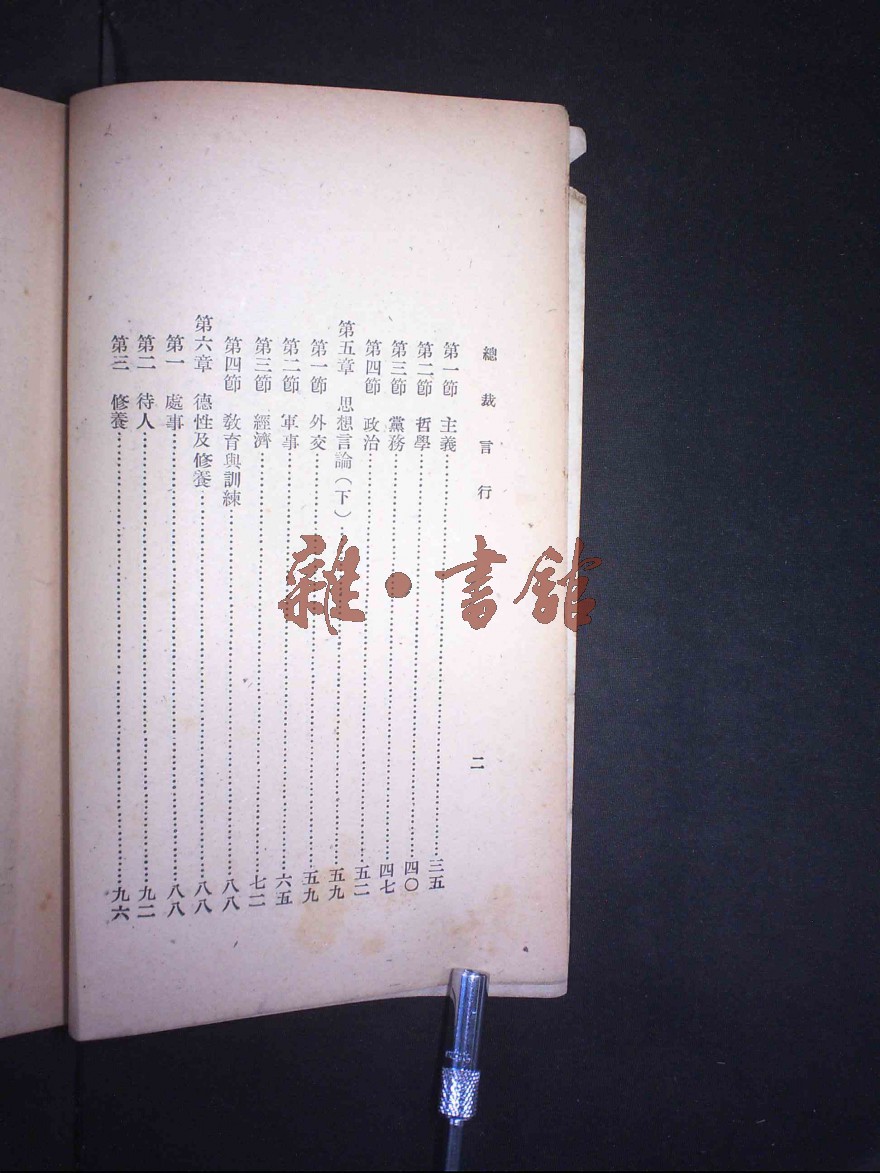 總裁言行
二
第一節 主義……三五
第二節 哲學……四〇
第三節 黨務……四七
第四節 政治……五二
第五章 思想言論(下)……五九
第一節 外交……五九
第二節 軍事……六五
第三節 經濟……七二
第四節 敎育與訓練……八八
第六章 德性及修養……八八
第一 處事……八八
第二 待人……九二
第三 修養……九六
雜·書館